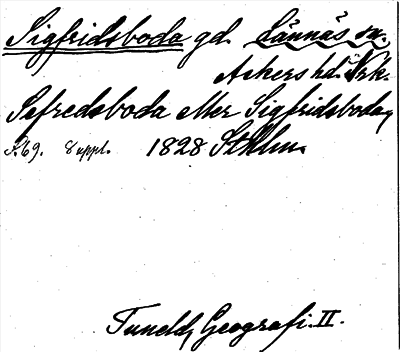 Sigfridsboda gd. Lännäs sn.
Askers hd. Nrk.
Sefredsboda eller Sigfridsboda,
S. 69. 8 uppl. 1828 Sthlm.
Tuneld, Geografi. II.